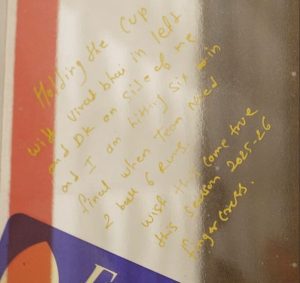 Holding the Cup
with Virat bhai in left
and DK on side of me
and I am hitting six in
final when Team need
2 ball 6 Runs.
wish this come true
this season 2025-26
finger cross.